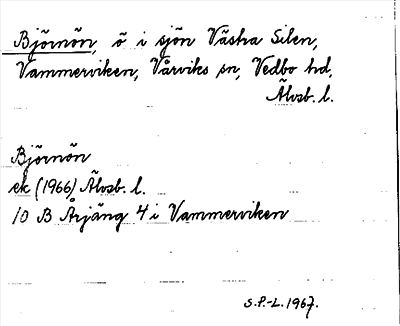 Björnön, ö i sjön Västra Silen,
Vammerviken, Vårviks sn, Vedbo hd,
Älvsb. l.
Björnön
ek (1966) Älvsb. l.
10 B Årjäng 4 i Vammerviken
S.P.-L. 1967.